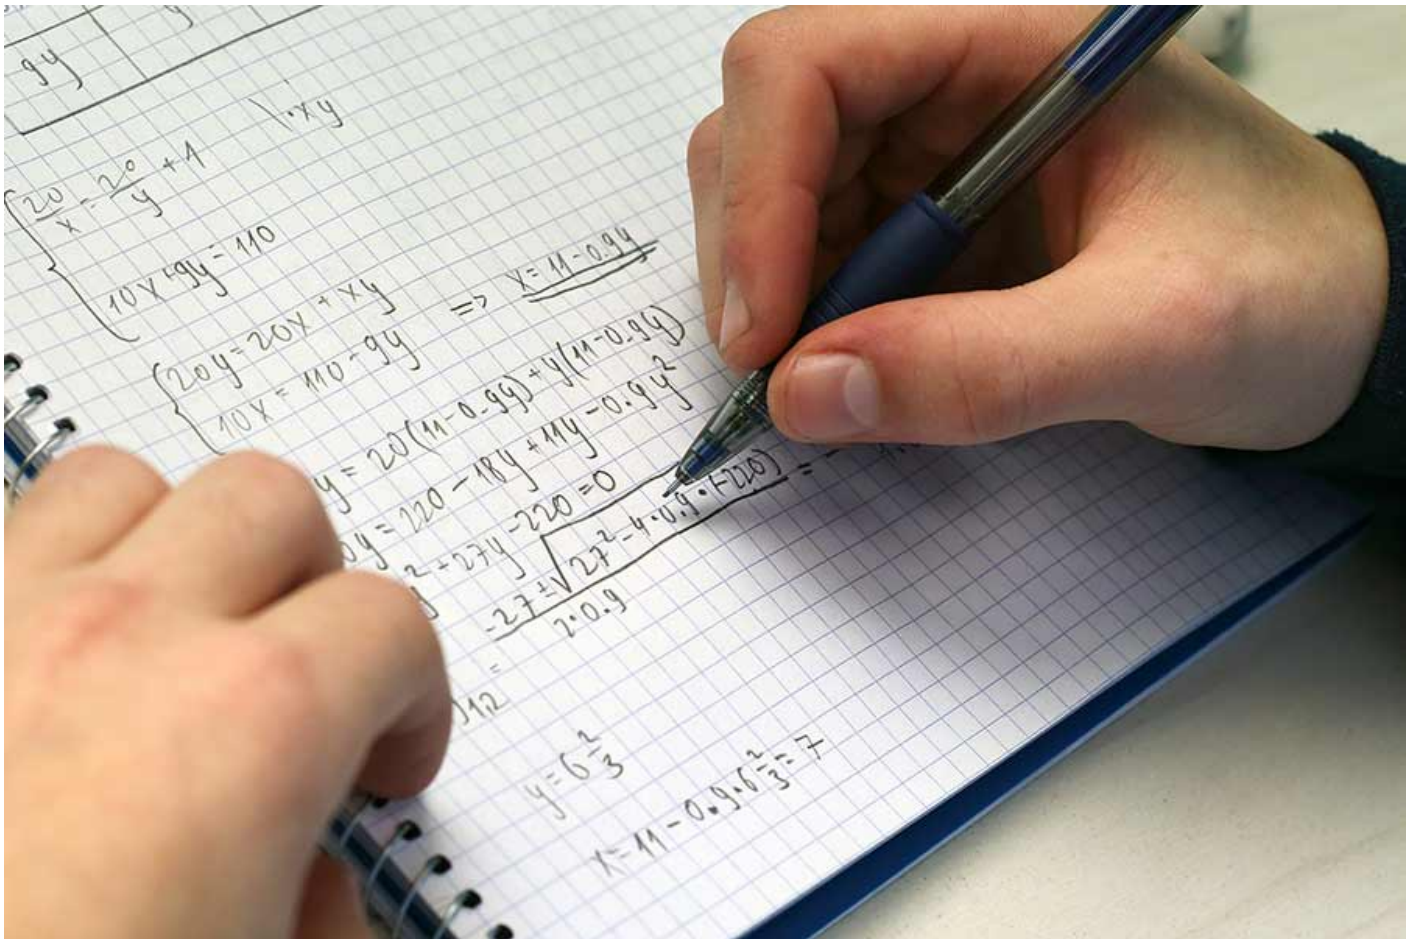 9y y
\ ·xy
20/x = 20/y + 1
10x + 9y = 110
20y = 20x + xy
10x = 110 - 9y => x = 11 - 0.9y
y = 20(11 - 0.9y) + y(11 - 0.9y)
0y = 220 - 18y + 11y - 0.9y²
² + 27y - 220 = 0
-27 ± √27² - 4·0.9·(-220) = -
2·0.9
)12 =
y = 6 2/3
x = 11 - 0.9·6 2/3 = 7